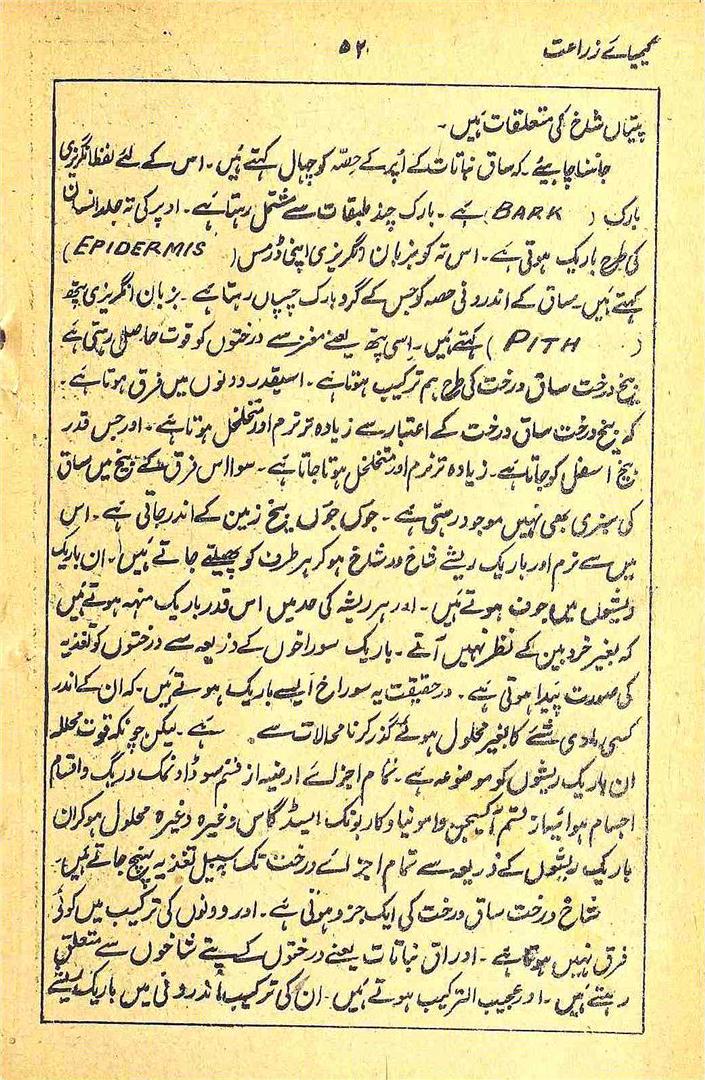 کیمیائے زراعت ۵۲
پتیاں شاخ کی متعلقات ہیں۔
جاننا چاہیئے۔ کہ ساق نباتات کے اُپر کے حِصّہ کو چہال کہتے ہیں۔ اس کے لئے لفظ انگریزی
بارک (BARK) ہے۔ بارک چند طبقات سے مشتمل رہتا ہے۔ اوپر کی تہ جلد انسان
کی طرح باریک ہوتی ہے۔ اس تہ کو بزبان انگریزی اپی ڈرمس (EPIDERMIS)
کہتے ہیں۔ ساق کے اندرونی حصہ کو جس کے گرد بارک چسپاں رہتا ہے۔ بزبان انگریزی پتھ
(PITH) کہتے ہیں۔ اِسی پتھ یعنے مغز سے درختوں کو قوت حاصل رہتی ہے
بیخ درخت ساق درخت کی طرح ہم ترکیب ہوتا ہے۔ اسیقدر دونوں میں فرق ہوتا ہے۔
کہ بیخ درخت ساق درخت کے اعتبار سے زیادہ تر نرم اور متخلخل ہوتا ہے۔ اور جس قدر
بیخ اسفل کو جاتا ہے۔ زیادہ تر نرم اور متخلخل ہوتا جاتا ہے۔ سوا اس فرق کے بیخ میں ساق
کی سبزی بھی نہیں موجود رہتی ہے۔ جوں جوں بیخ زمین کے اندر جاتی ہے۔ اس
میں سے نرم اور باریک ریشے شاخ در شاخ ہو کر ہر طرف کو پھیلتے جاتے ہیں۔ ان باریک
ریشوں میں جوف ہوتے ہیں۔ اور ہر ریشہ کی حد میں اس قدر باریک منہہ ہوتے ہیں
کہ بغیر خردبین کے نظر نہیں آتے۔ باریک سوراخوں کے ذریعہ سے درختوں کو تغذیہ
کی صورت پیدا ہوتی ہے۔ درحقیقت یہ سوراخ ایسے باریک ہوتے ہیں۔ کہ ان کے اندر
کسی مادی شئے کا بغیر محلول ہوئے گذر کرنا محالات سے ہے۔ لیکن چونکہ قوت محللہ
ان باریک ریشوں کو موضوعہ ہے۔ تمام اجزائے ارضیہ از قسم سوڈا و نمک و ریگ و اقسام
اجسام ہوائیہ از قسم آکسیجن و امونیا و کاربونک ایسڈ گاس وغیرہ وغیرہ محلول ہو کر ان
باریک ریشوں کے ذریعہ سے تمام اجزائے درخت تک بسبیل تغذیہ پہنچ جاتے ہیں۔
شاخ درخت ساق درخت کی ایک جزو ہوتی ہے۔ اور دونوں کی ترکیب میں کوئی
فرق نہیں ہوتا ہے۔ اوراق نباتات یعنے درختوں کے پتے شاخوں سے متعلق
رہتے ہیں۔ اور عجیب الترکیب ہوتے ہیں۔ ان کی ترکیب اندرونی میں باریک ریشے